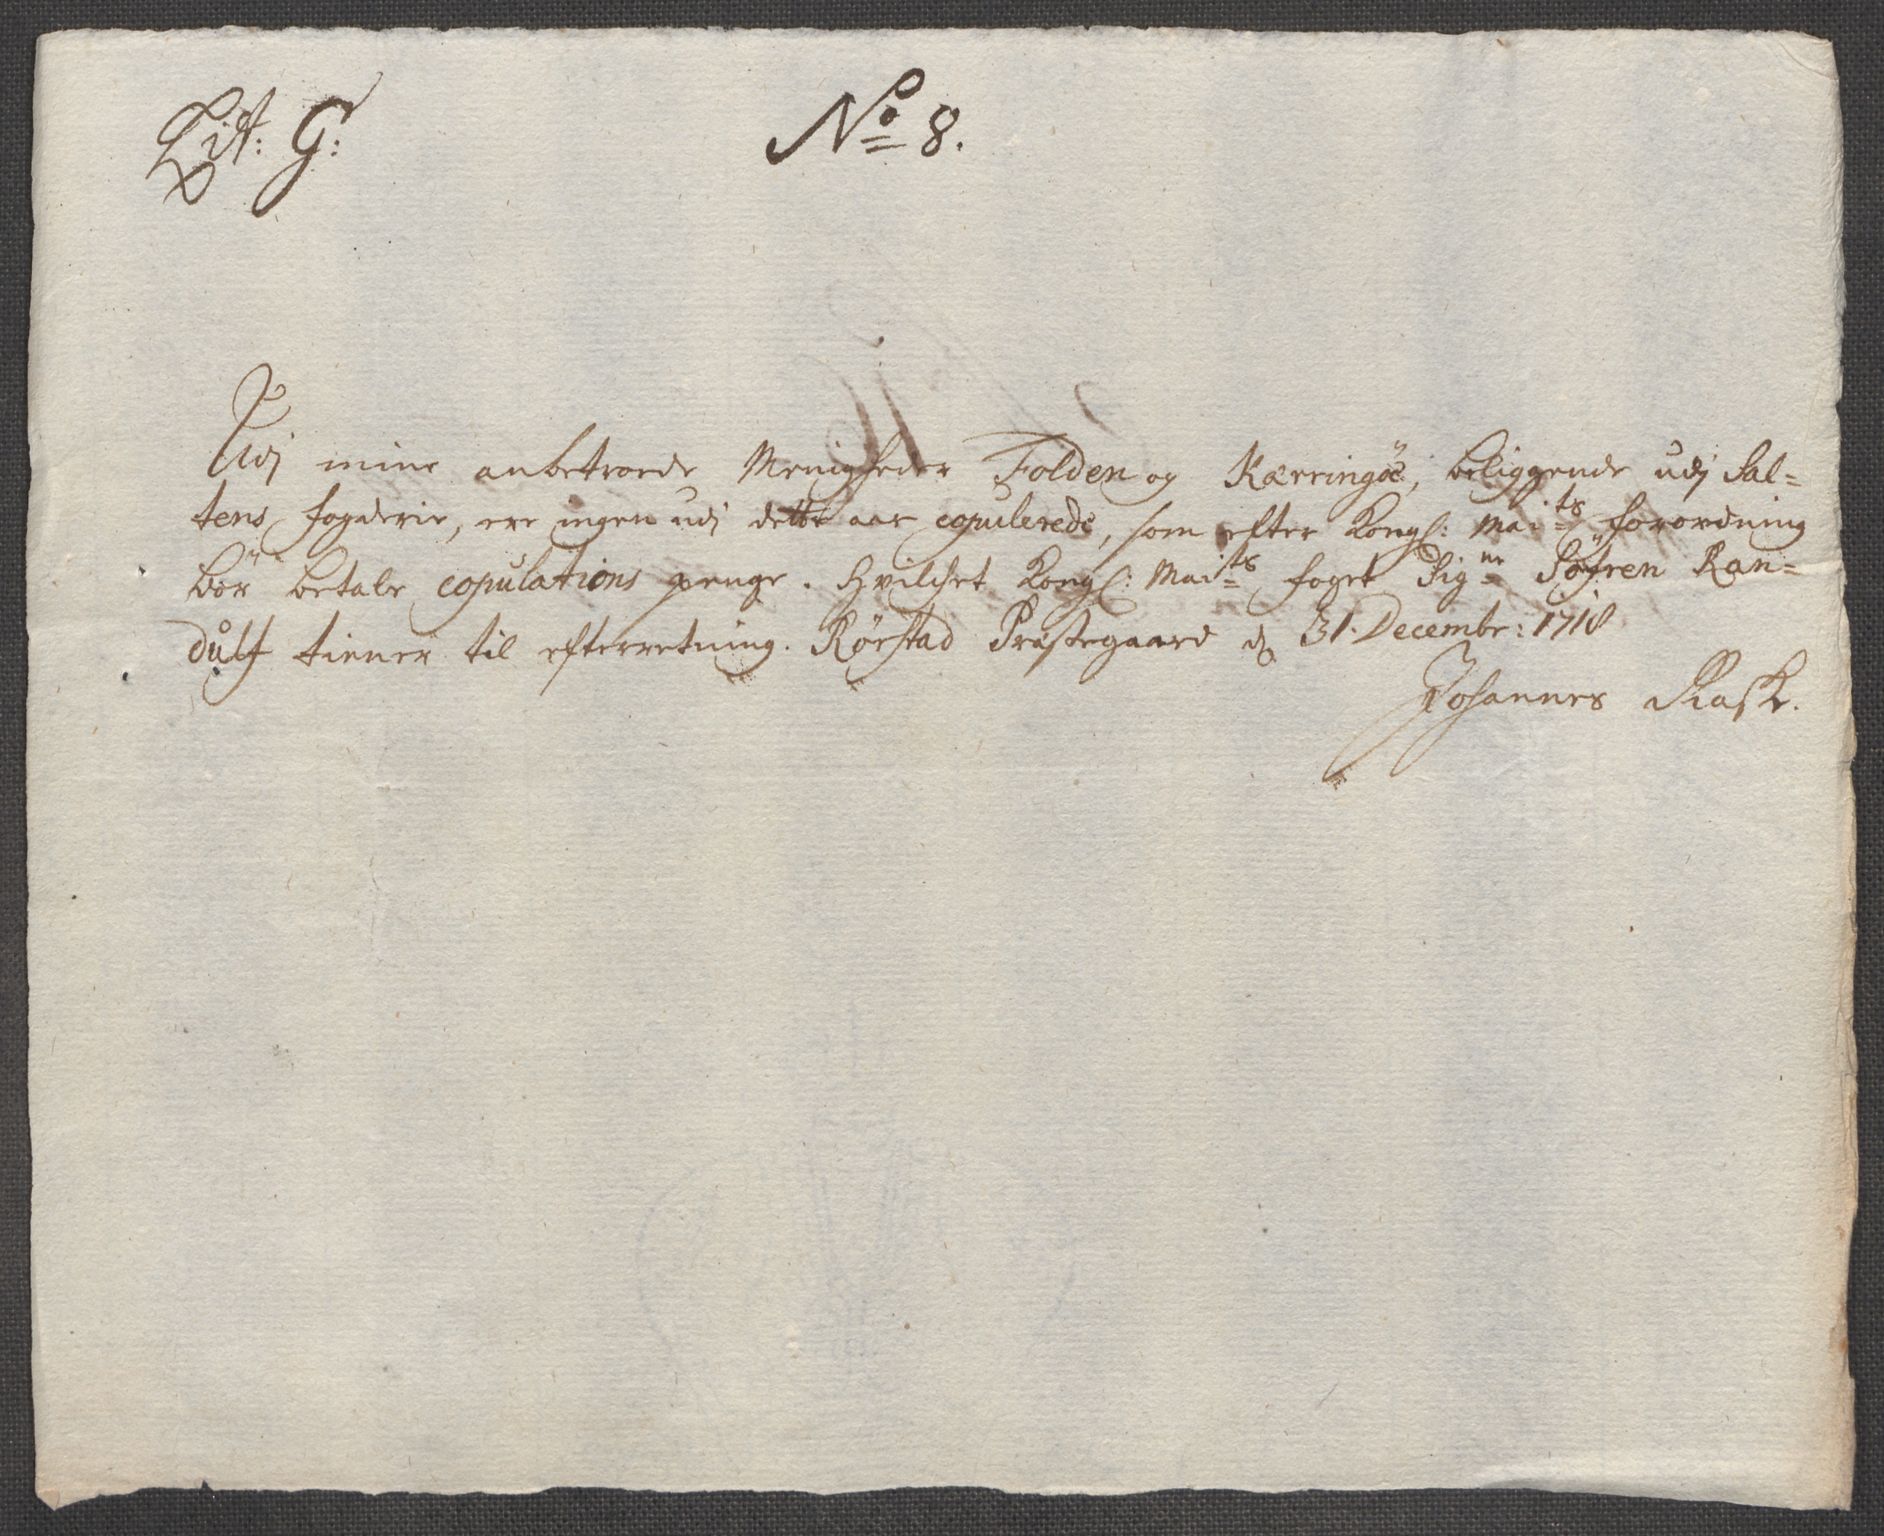 Lit: G: No 8.
Udj mine anbetroede Menigheder Folden og Kærringöe, beliggende udj Sal=
tens fogderie, ere ingen udj dette aar copulerede, som efter Kongl: Maits forordning
bör betale copulations penge. Hvilchet Kongl: Maits foget Sigr Söfren Ran=
dulf tiener til efterretning. Rörstad Præstegaard d 31. Decembr: 1718
Johannes Rask.